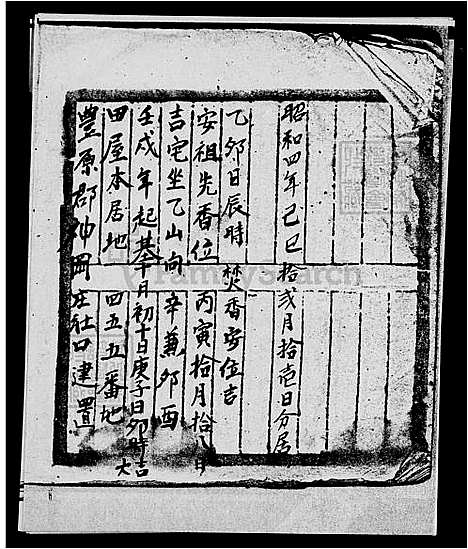 昭和四年己巳拾弍月拾壱日分居
乙卯日辰時焚香安位吉
安祖先香位丙寅拾月拾八日
吉宅坐乙山向辛兼卯酉
壬戌年起基十月初十日庚子日卯時吉大
田屋本居地四五五番地
豐原郡神岡庄社口建置
FamilySearch